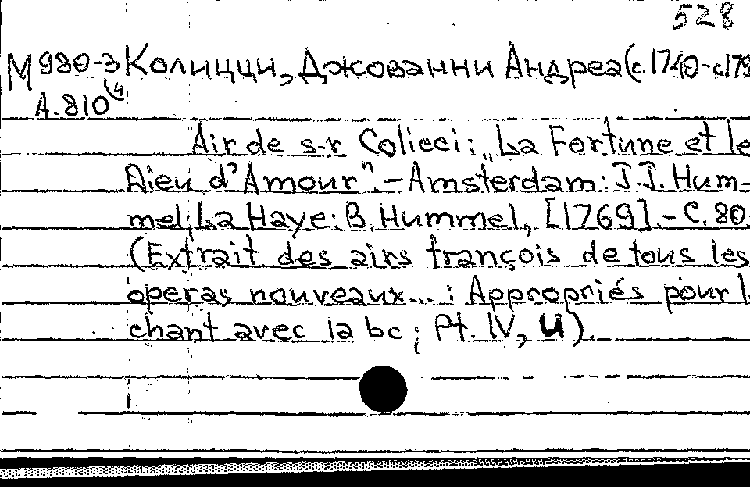 528
М980-3 Колицци, Джованни Андреа (c. 1740-c. 179
А.810 (4
Air de s-r Colicci: „La Fortune et le
Dieu d'Amour". - Amsterdam: J.J. Hum-
mel; La Haye: B. Hummel, [1769]. - C. 80.
(Extrait des airs françois de tous les
operas nouveaux...: Appropriés pour l
chant avec la bc; Pt. IV, 4).